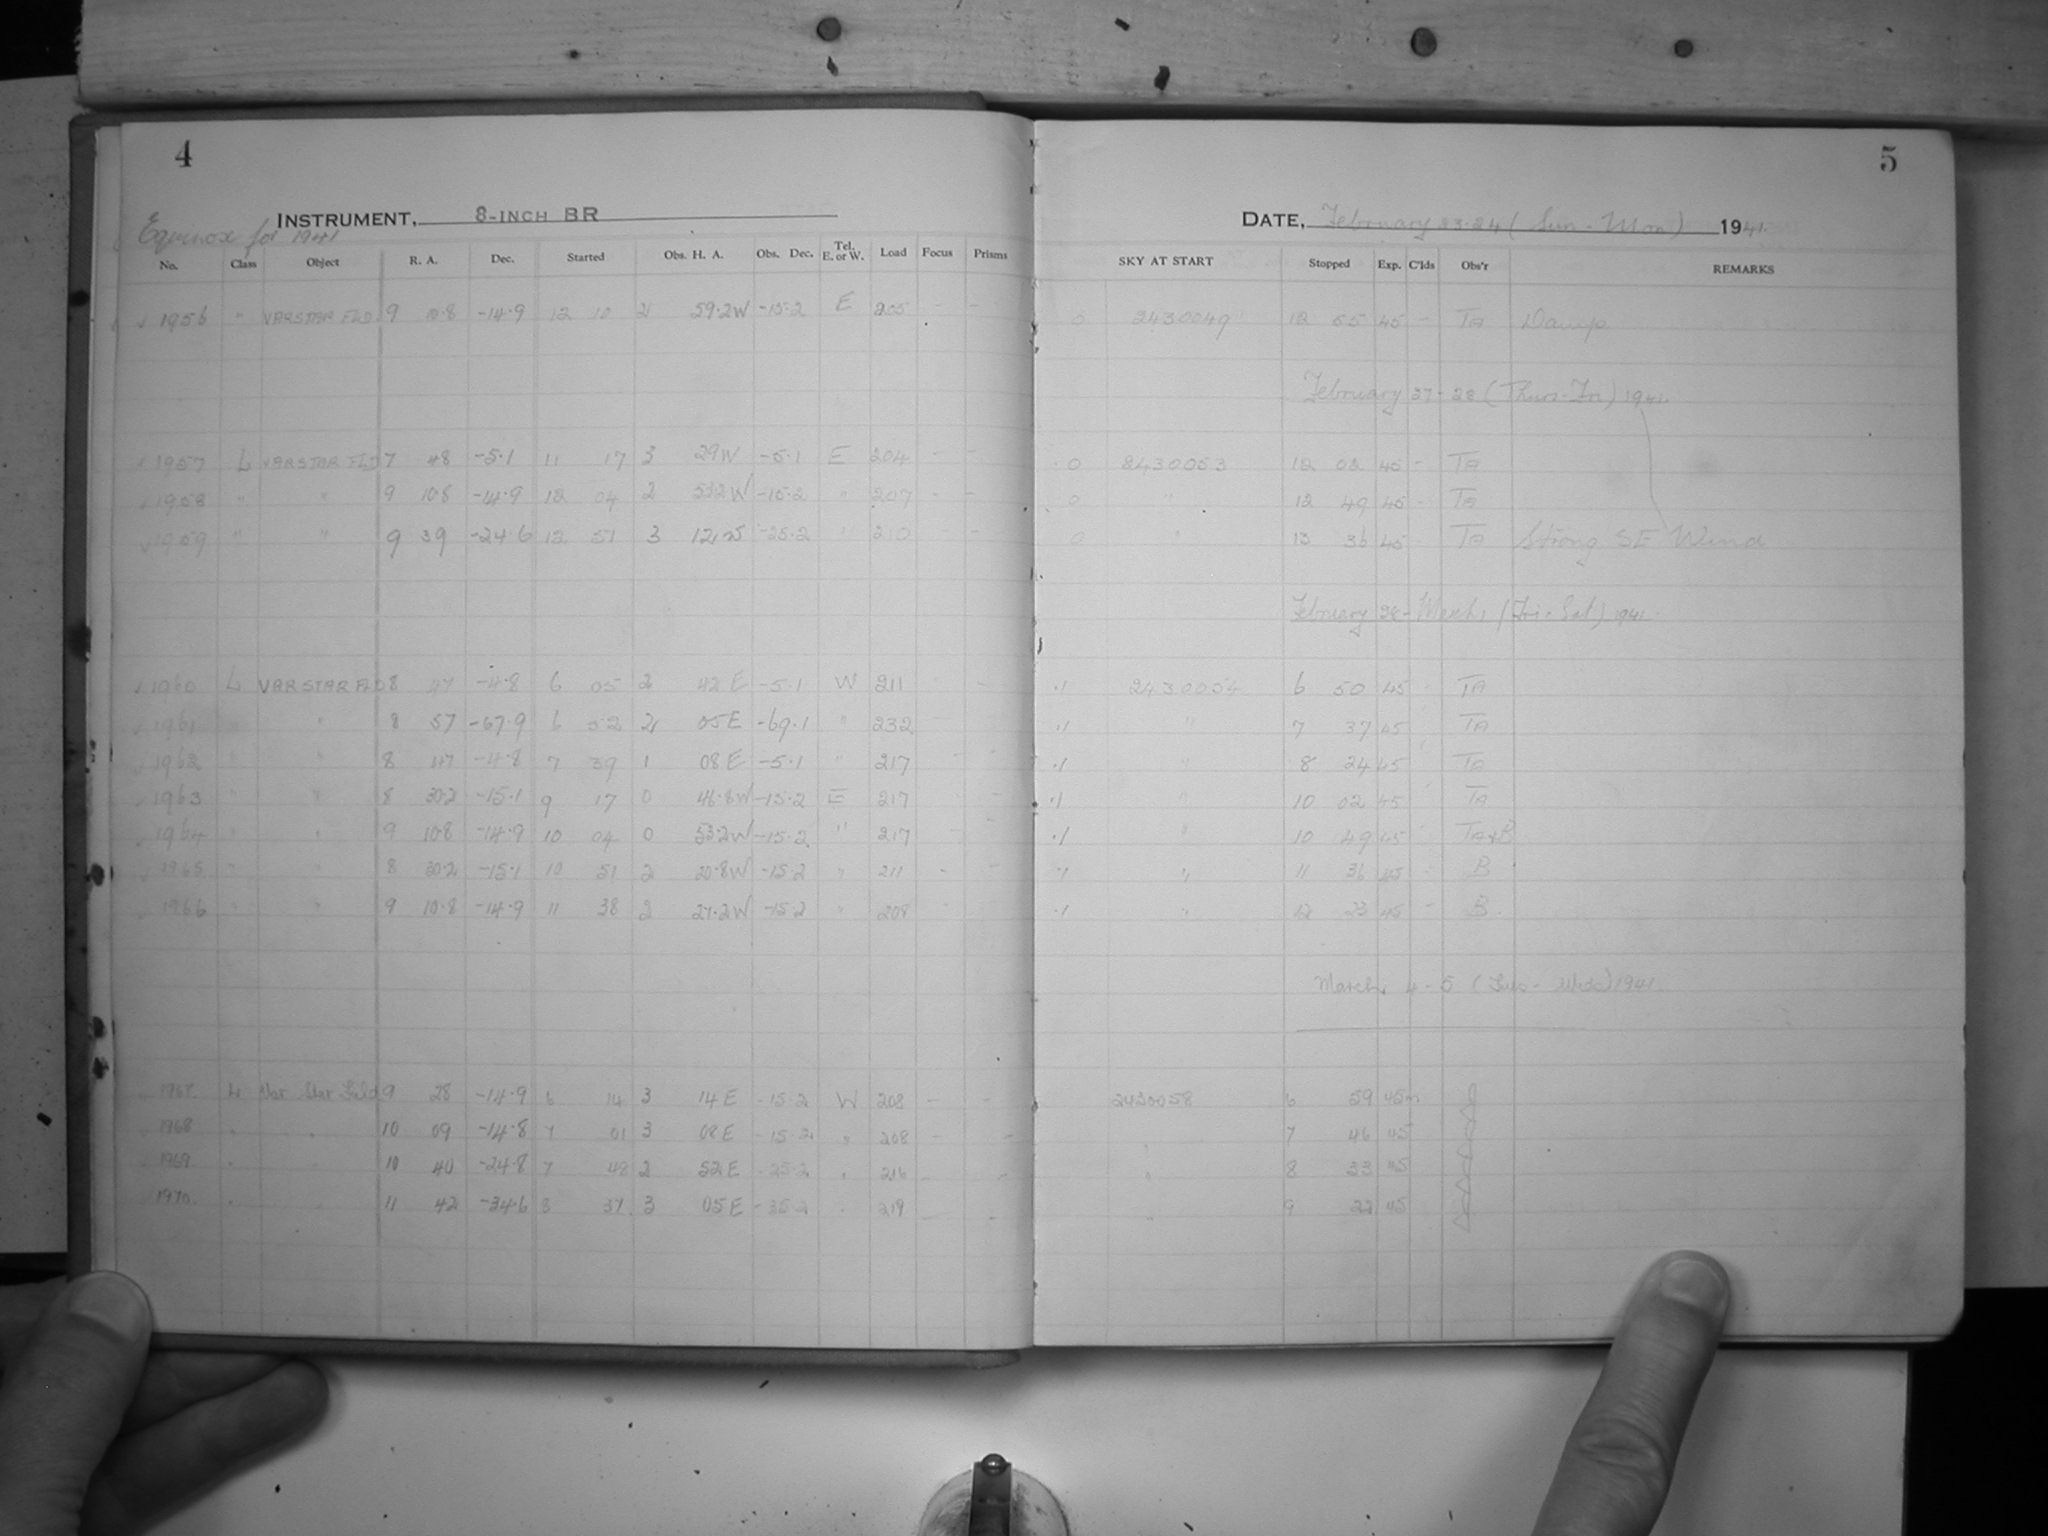 4
INSTRUMENT, 8-INCH BR
Equinox for 1941
No. Class Object R. A. Dec. Started Obs. H. A. Obs. Dec. Tel. E. or W. Load Focus Prisms
1956 " VAR STAR FLD 9 10.8 -14.9 12 10 2 59.2W -15.2 E 205 - -
1957 L VAR STAR FLD 7 48 -5.1 11 17 3 29W -5.1 E 204 - -
1958 " " 9 10.8 -14.9 12 04 2 53.2W -15.2 " 207 - -
1959 " " 9 39 -24.6 12 51 3 12W -25.2 " 210 - -
1960 L VAR STAR FLD 8 47 -4.8 6 05 2 42E -5.1 W 211 - -
1961 " " 8 57 -67.9 6 52 2 05E -69.1 " 232
1962 " " 8 47 -4.8 7 39 1 08E -5.1 " 217
1963 " " 8 30.2 -15.1 9 17 0 46.8W -15.2 E 217
1964 " " 9 10.8 -14.9 10 04 0 53.2W -15.2 " 217
1965 " " 8 30.2 -15.1 10 51 2 20.8W -15.2 " 211 - -
1966 " " 9 10.8 -14.9 11 38 2 27.2W -15.2 " 208
1967 L Var Star Field 9 28 -14.9 6 14 3 14E -15.2 W 208 - -
1968 " " 10 09 -14.8 7 01 3 08E -15.2 " 208 - -
1969 " " 10 40 -24.8 7 48 2 52E -25.2 " 216 - -
1970 " " 11 42 -34.6 8 37 3 05E -35.2 " 219 - -
5
DATE, February 23-24 (Sun - Mon) 1941
SKY AT START Stopped Exp. C'lds Obs'r REMARKS
0 2430049 12 55 45 - TA Damp
February 27-28 (Thurs-Fri) 1941
0 2430053 12 02 45 - TA
0 " 12 49 45 - TA
0 " 13 36 45 TA Strong SE Wind
February 28 - March 1 (Fri - Sat) 1941
.1 2430054 6 50 45 TA
.1 " 7 37 45 TA
.1 " 8 24 45 TA
.1 " 10 02 45 TA
.1 " 10 49 45 TA+B
.1 " 11 36 45 B
.1 " 12 23 45 - B
March 4-5 (Tues - Wed) 1941
2430058 6 59 45m
" 7 46 45
" 8 33 45
" 9 22 45